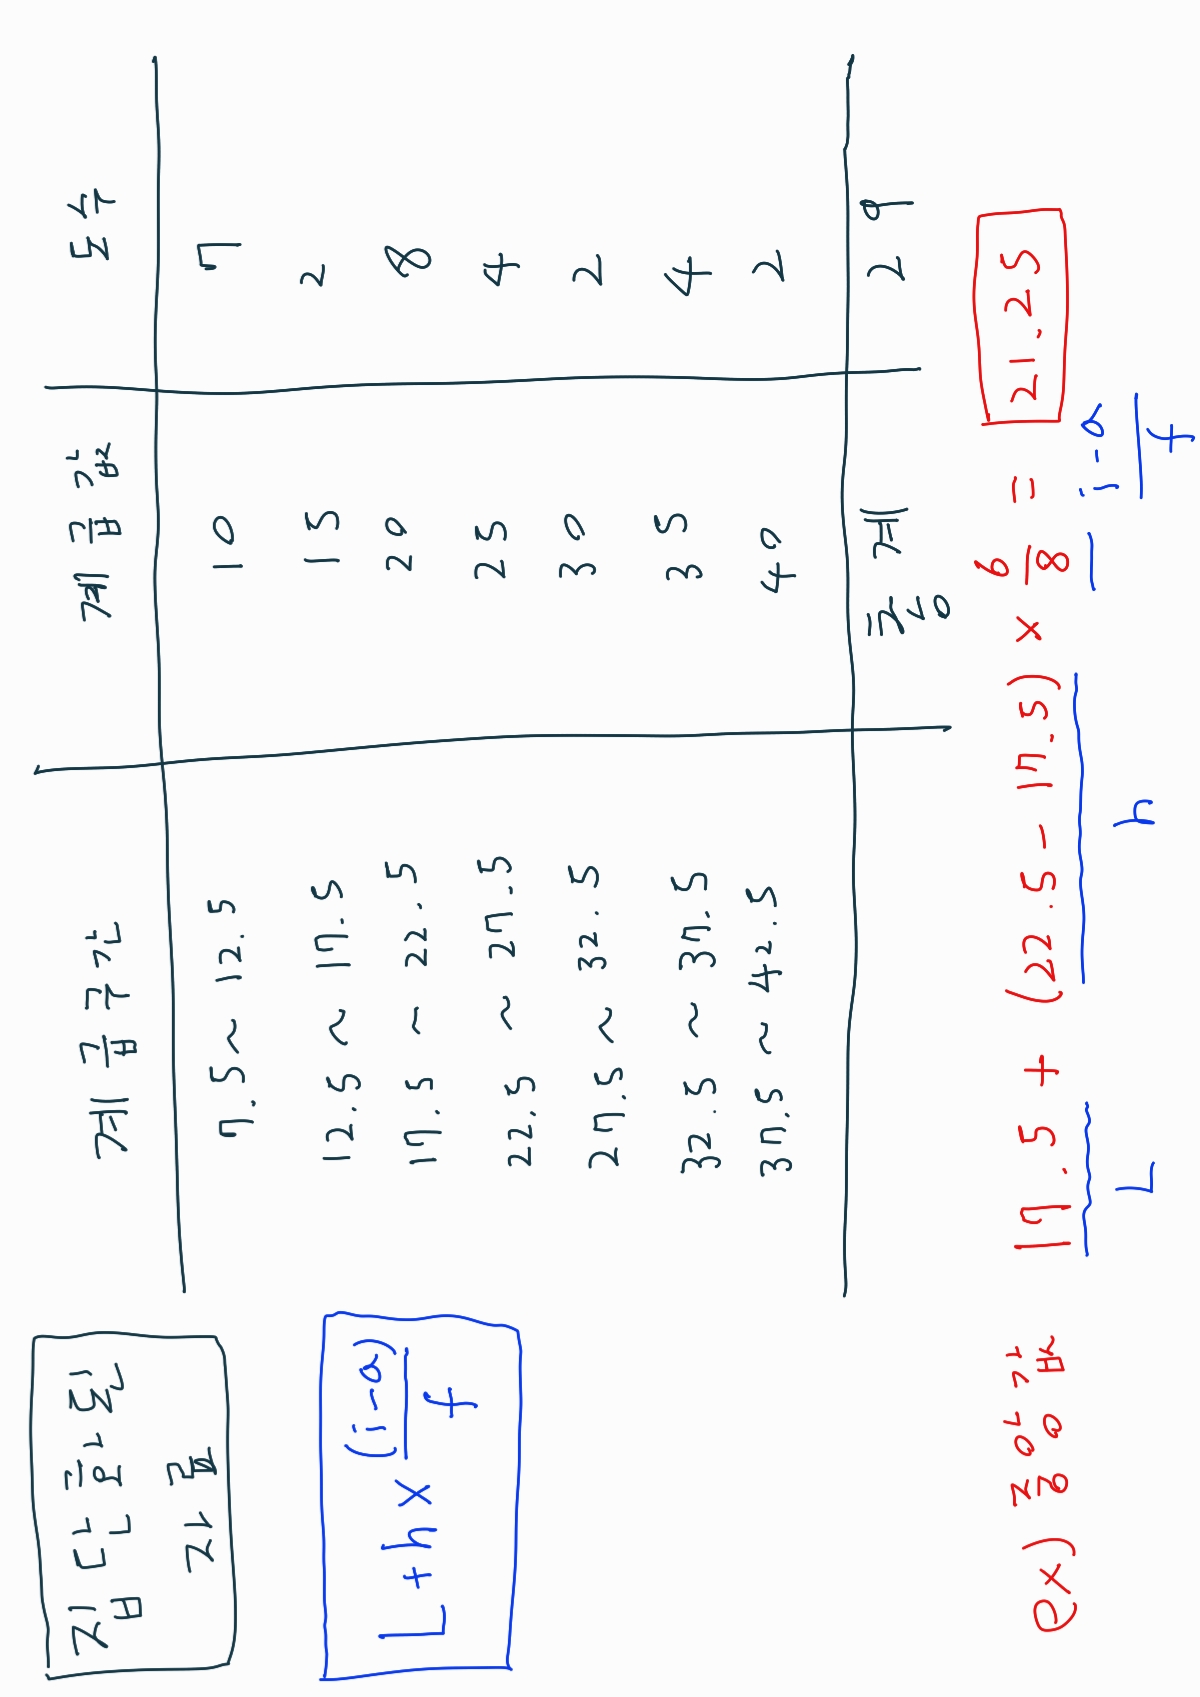 집단화된
자료
계급구간 계급값 도수
7.5 ~ 12.5 10 7
12.5 ~ 17.5 15 2
17.5 ~ 22.5 20 8
22.5 ~ 27.5 25 4
27.5 ~ 32.5 30 2
32.5 ~ 37.5 35 4
37.5 ~ 42.5 40 2
총계 29
L + h × (i-a)/f
ex) 중앙값 17.5 + (22.5 - 17.5) × 6/8 = 21.25
L h i-a/f